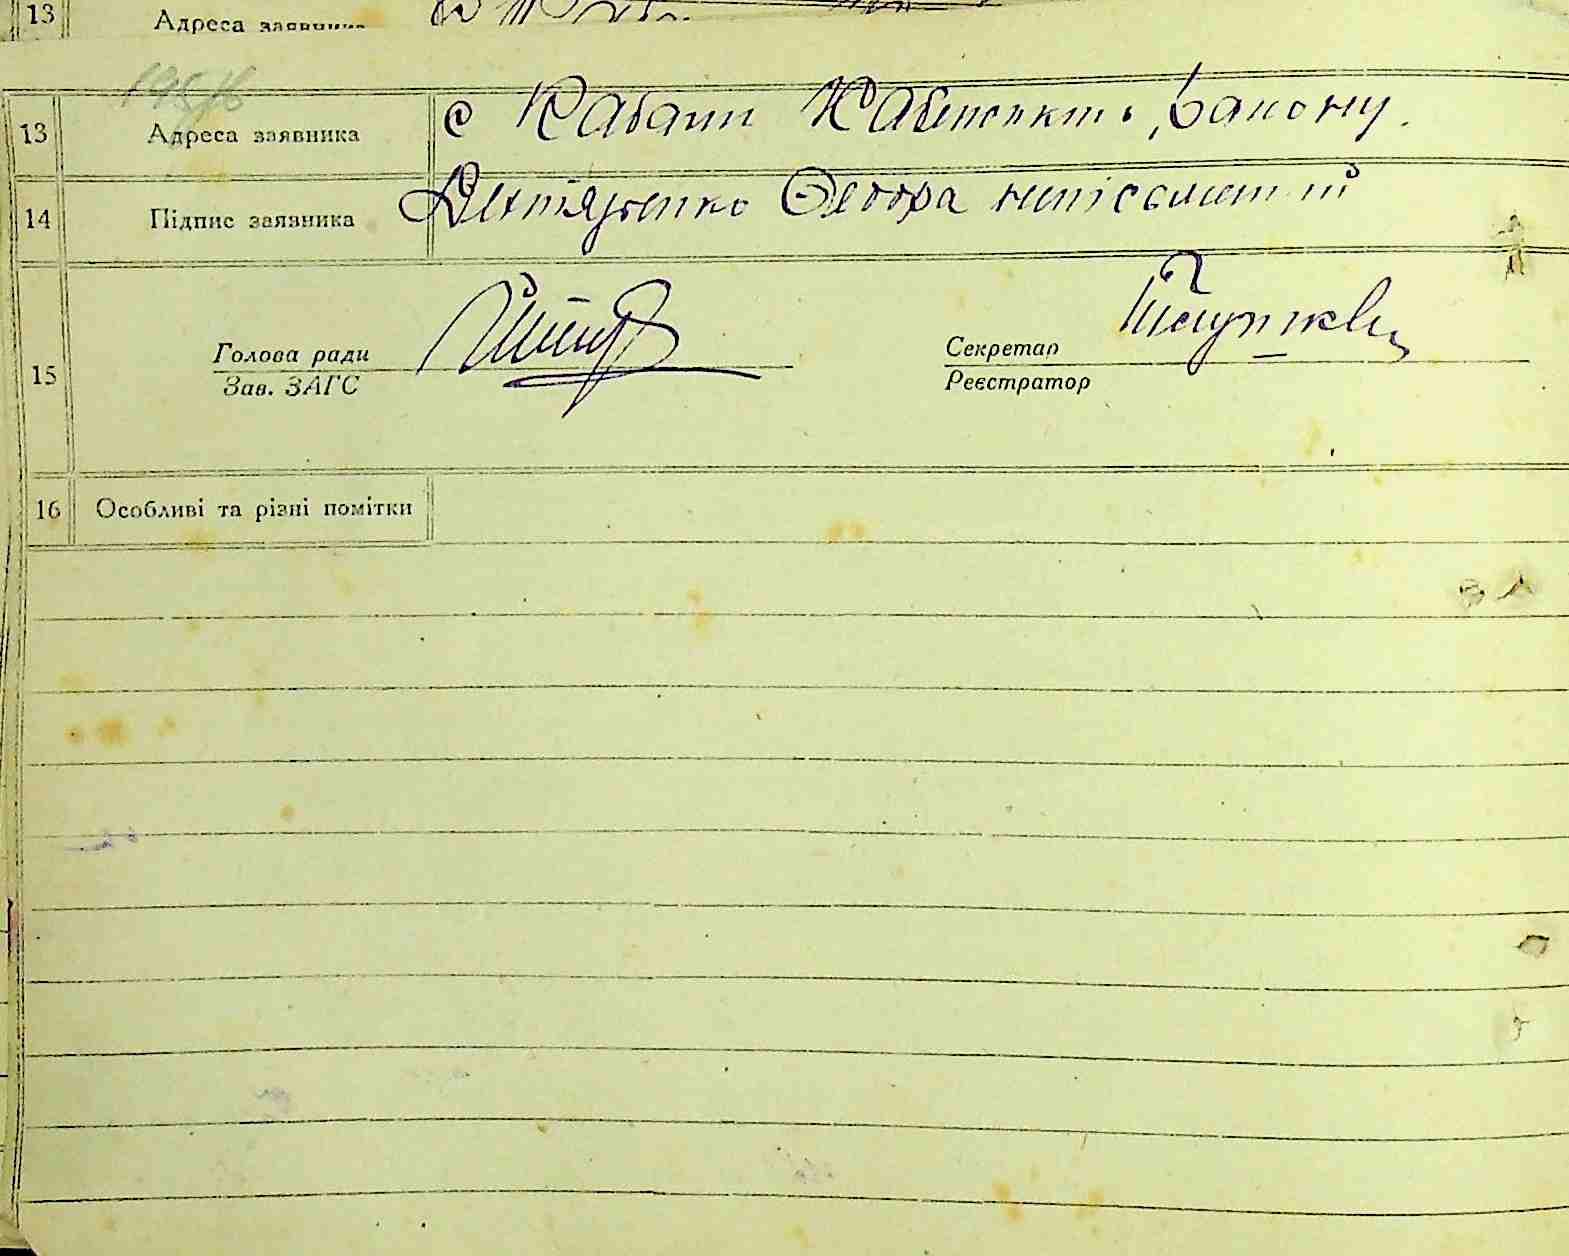 13 Адреса заявника
13 Адреса заявника с Кабани Кабанського району.
14 Підпис заявника Дехтяренко Федора неписьменний
Голова ради Секретар
15 Зав. ЗАГС Реєстратор
16 Особливі та різні помітки